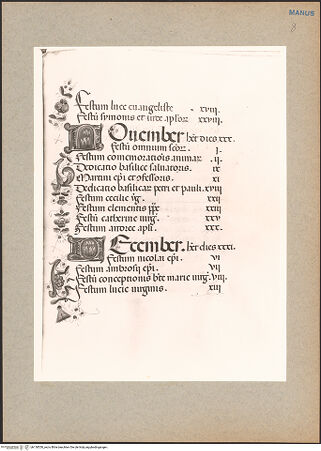 MANUS
8
Festum luce euangeliste xviii.
Festū symonis et iude aploꝝ xxviii.
NOuember. hēt dies xxx.
Festū omnium scōꝝ. i.
Festum comemoratiōis animaꝝ .ii.
Dedicatio basilice saluatoris. ix
Martini epi et ꝯfessoris. xi
Dedicatio basilicaꝝ petri et pauli. xviii
Festum cecilie vg̅. xxii
Festum clementis pp̅e xxiii
Festū catherine virg̅. xxv
Festum andree apli. xxx.
DEcember. hēt dies xxxi.
Festum nicolai epi. vi
Festum ambrosij epi. vii
Festū conceptionis bte marie virg̅. viii.
Festum lucie virginis. xiii